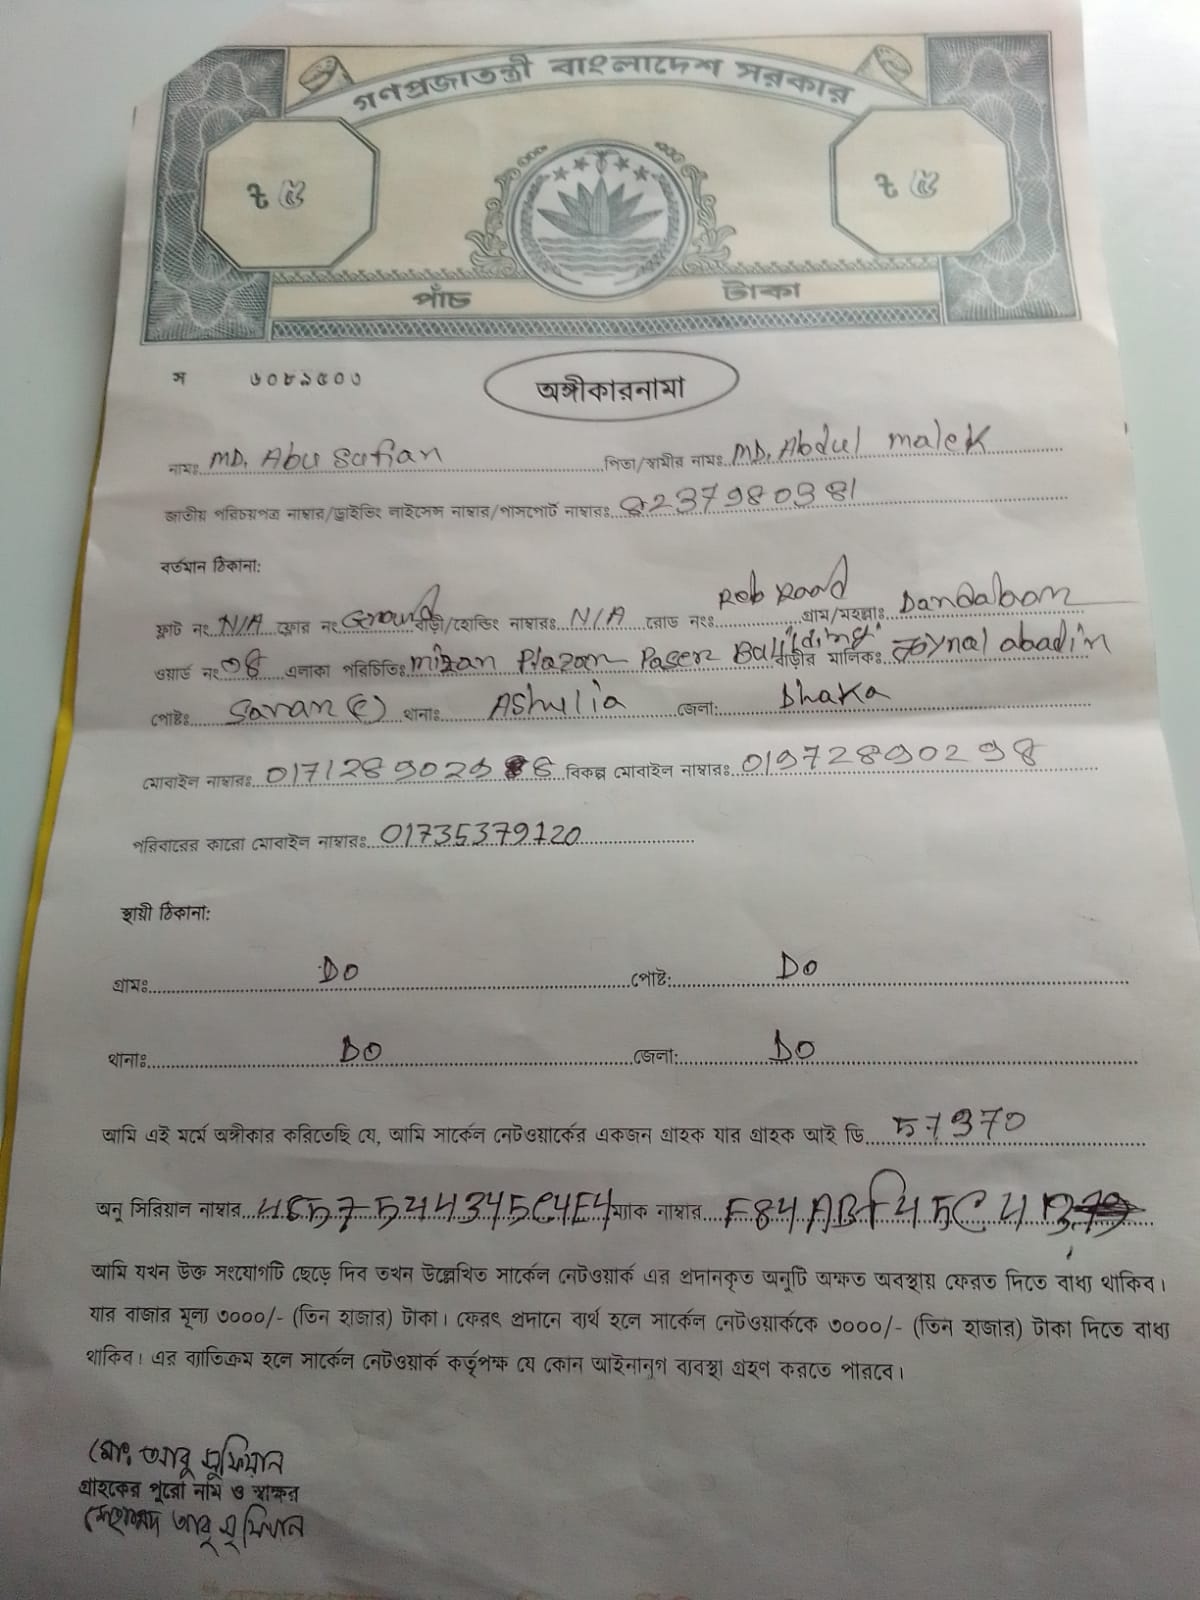 গণপ্রজাতন্ত্রী বাংলাদেশ সরকার
৳ ৫ ৳ ৫
পাঁচ টাকা
স ৬০৮৯৫০৬
অঙ্গীকারনামা
নামঃ MD. Abu Sufian পিতা/স্বামীর নামঃ MD. Abdul malek
জাতীয় পরিচয়পত্র নাম্বার/ড্রাইভিং লাইসেন্স নাম্বার/পাসপোর্ট নাম্বারঃ 8237980381
বর্তমান ঠিকানা:
ফ্লাট নং N/A ফ্লোর নং Ground বাড়ী/হোল্ডিং নাম্বারঃ N/A রোড নংঃ Rob Road গ্রাম/মহল্লাঃ
ওয়ার্ড নং 08 এলাকা পরিচিতিঃ mizan Plazar Paser Bailding বাড়ীর মালিকঃ Joynal abadin
পোষ্টঃ Savar থানাঃ Ashulia জেলা: Dhaka
মোবাইল নাম্বারঃ বিকল্প মোবাইল নাম্বারঃ 01972890298
পরিবারের কারো মোবাইল নাম্বারঃ 01735379120
স্থায়ী ঠিকানা:
গ্রামঃ DO পোষ্ট: DO
থানাঃ DO জেলা: DO
আমি এই মর্মে অঙ্গীকার করিতেছি যে, আমি সার্কেল নেটওয়ার্কের একজন গ্রাহক যার গ্রাহক আই ডি 57970
অনু সিরিয়াল নাম্বার ম্যাক নাম্বার
আমি যখন উক্ত সংযোগটি ছেড়ে দিব তখন উল্লেখিত সার্কেল নেটওয়ার্ক এর প্রদানকৃত অনুটি অক্ষত অবস্থায় ফেরত দিতে বাধ্য থাকিব।
যার বাজার মূল্য ৩০০০/- (তিন হাজার) টাকা। ফেরৎ প্রদানে ব্যর্থ হলে সার্কেল নেটওয়ার্ককে ৩০০০/- (তিন হাজার) টাকা দিতে বাধ্য
থাকিব। এর ব্যাতিক্রম হলে সার্কেল নেটওয়ার্ক কর্তৃপক্ষ যে কোন আইনানুগ ব্যবস্থা গ্রহণ করতে পারবে।
মোঃ আবু সুফিয়ান
গ্রাহকের পুরো নাম ও স্বাক্ষর
মোহাম্মদ আবু সুফিয়ান